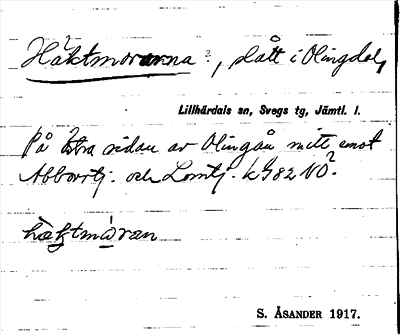 Håktmorarna?, slått i Olingdal,
Lillhärdals sn, Svegs tg, Jämtl. l.
På östra sidan av Olingån mitt emot
Abborrtj. och Lomtj. k 982 NO?.
hàktmòran
S. ÅSANDER 1917.